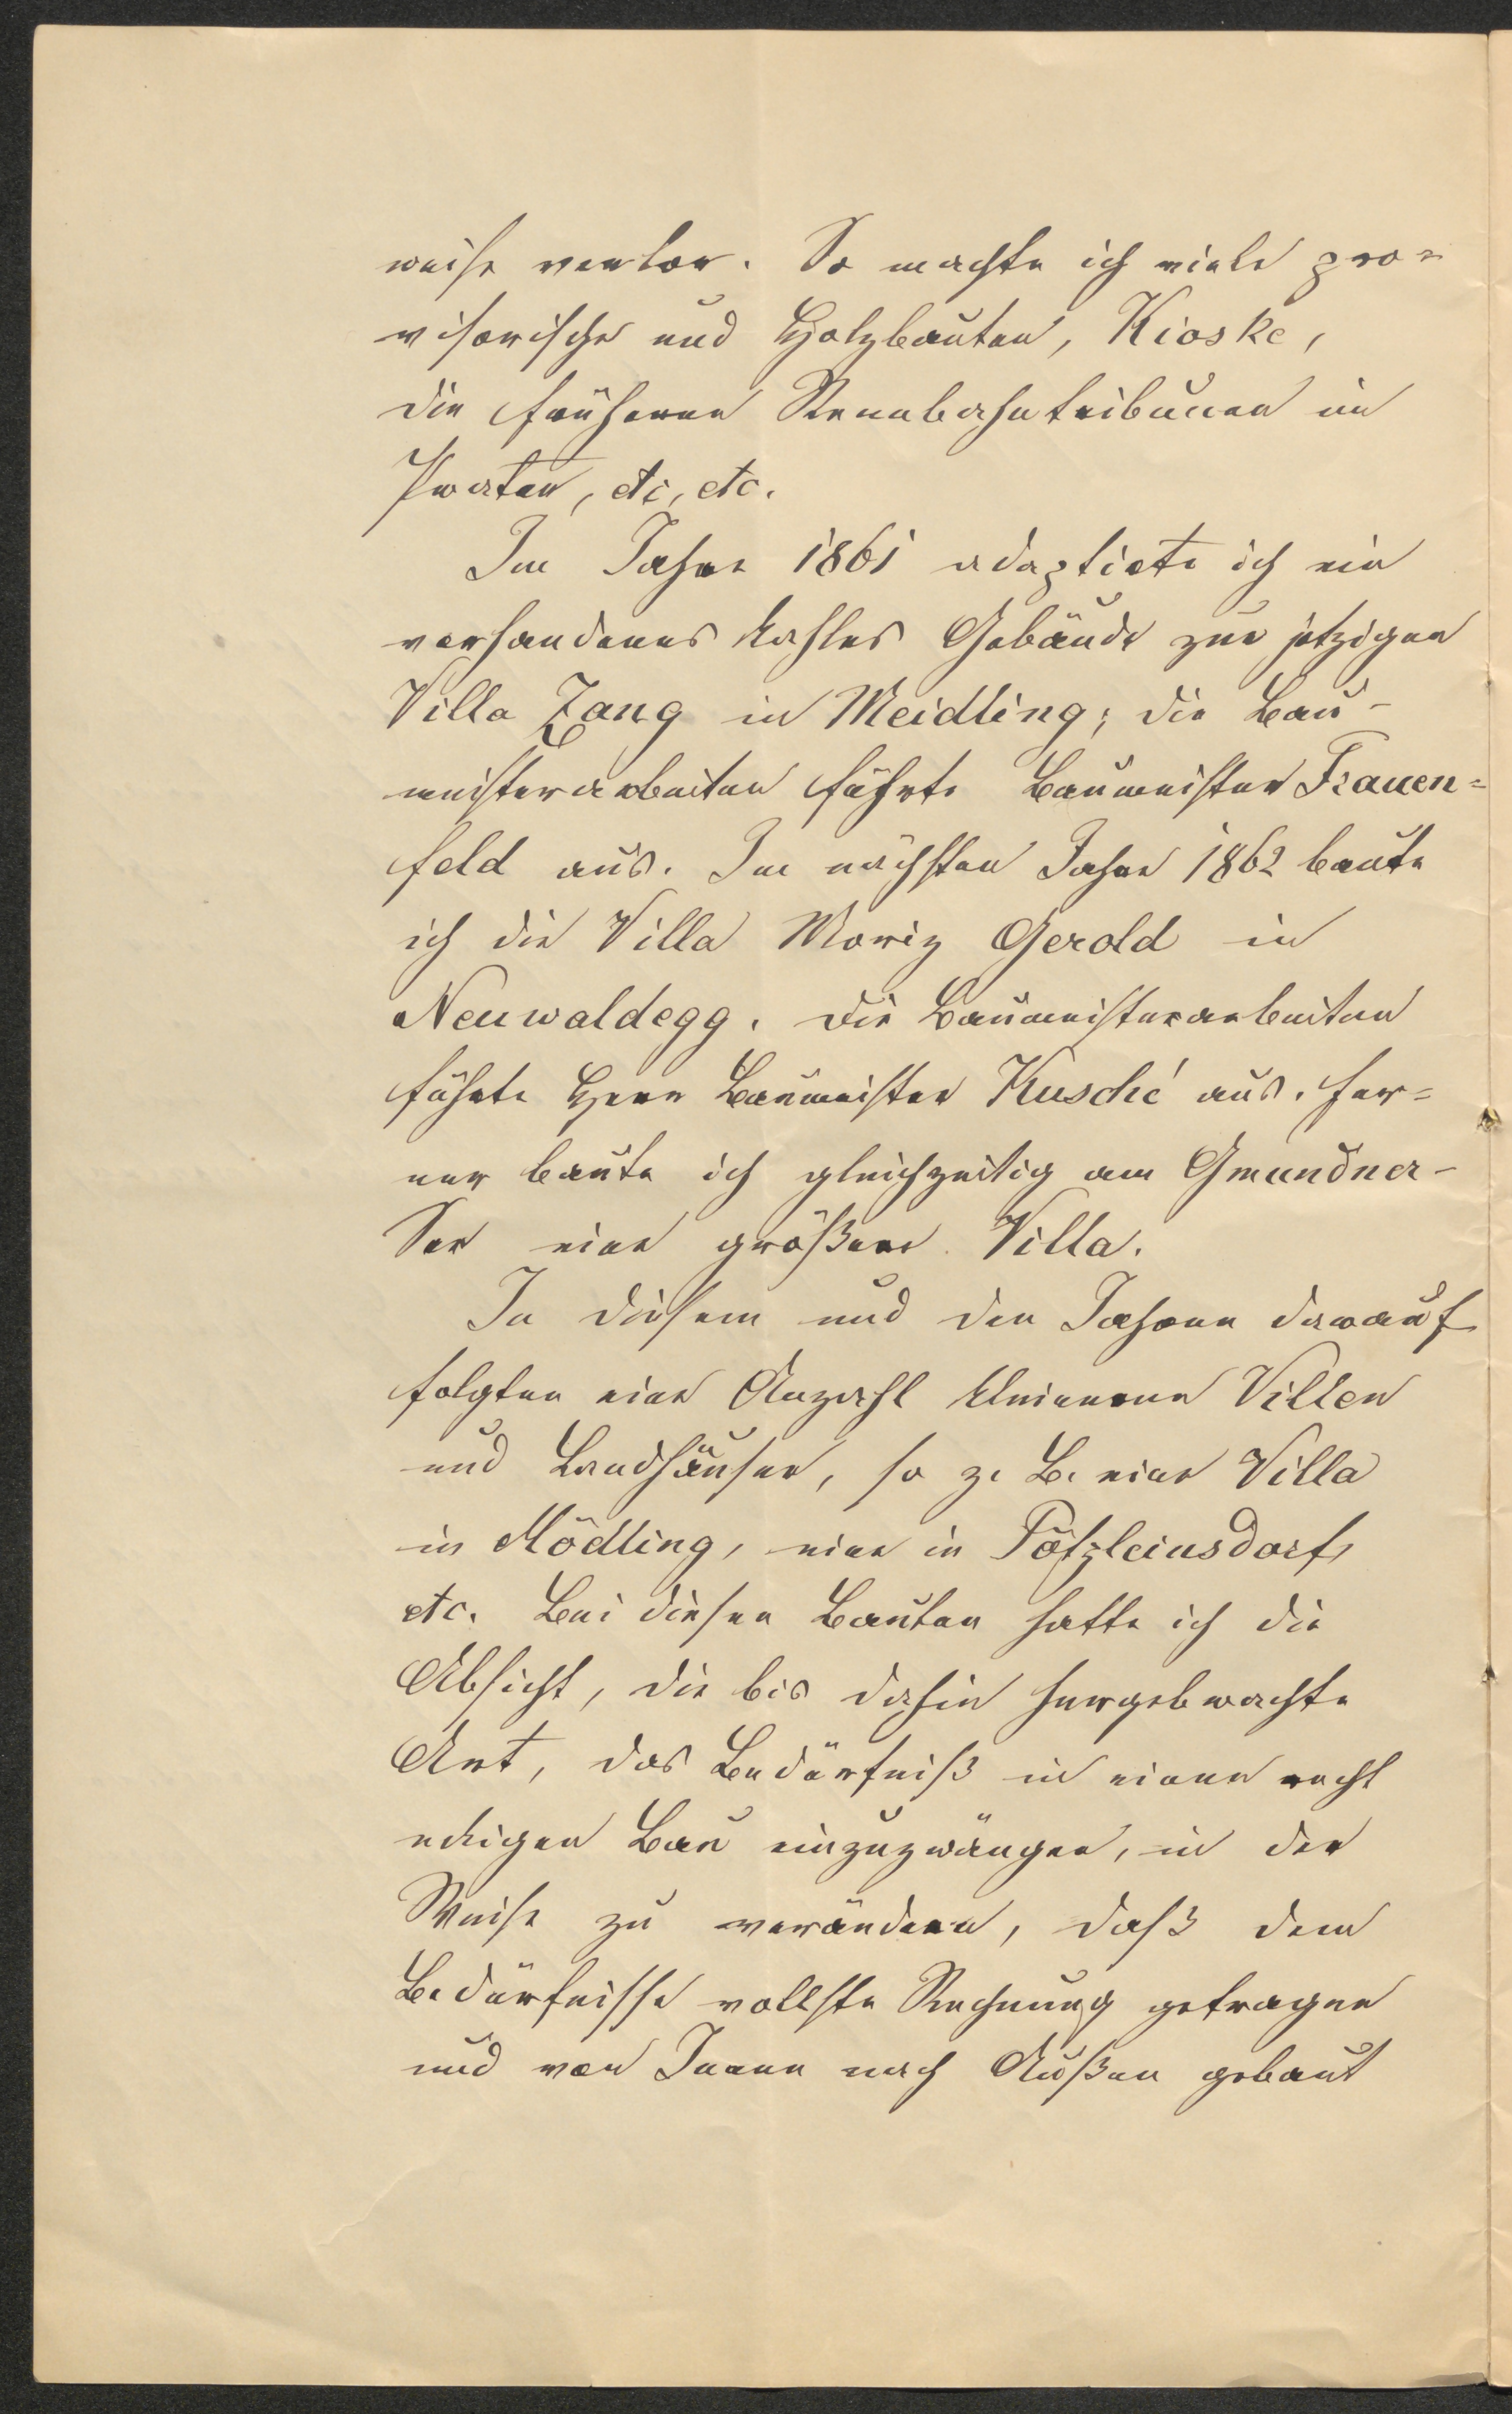 weise verlor. So machte ich viele pro=
visorische und Holzbauten, Kioske,
die früheren Rennbahntribünen im
Prater, etc, etc.
Im Jahre 1861 adaptirte ich ein
vorhandenes kahles Gebäude zur jetzigen
Villa Zang in Meidling; die Bau-
meisterarbeiten führte Baumeister Frauen=
feld aus. Im nächsten Jahre 1862 baute
ich die Villa Moriz Gerold in
Neuwaldegg. Die Baumeisterarbeiten
führte Herr Baumeister Kusché aus. Fer=
ner baute ich gleichzeitig am Gmundner-
See eine größere Villa.
In diesem und den Jahren darauf
folgten eine Anzahl kleinerer Villen
und Landhäuser, so z. B. eine Villa
in Mödling, eine in Pötzleinsdorf,
etc. Bei diesen Bauten hatte ich die
Absicht, die bis dahin hergebrachte
Art, das Bedürfniß in einen recht
eckigen Bau einzuzwängen, in der
Weise zu verändern, daß dem
Bedürfnisse vollste Rechnung getragen
und von Innen nach Außen gebaut